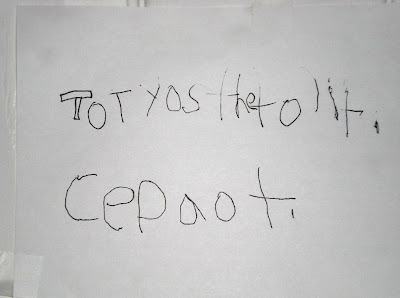 TOT YOS the to lit.
CEP aot.